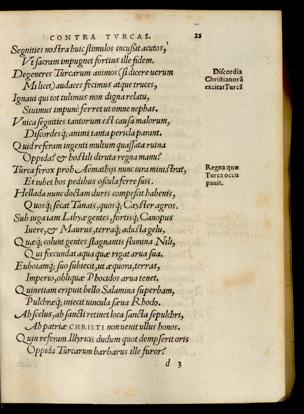 CONTRA TVRCAS. 28
Segnities nostra huic stimulos incussit acutos,
Vt sacram impugnet fortius ille fidem.
Degeneres Turcarum animos (si dicere verum
Mi licet) audaces fecimus atque truces,
Ignaui qui tot tulimus non digna relatu,
Siuimus impune ferret ut omne nephas.
Vnica segnities tantorum est causa malorum,
Discordesq; animi tanta pericla parant.
Quid referam ingenti multum quassata ruina
Oppida? & hostili diruta regna manu?
Turca ferox proh Aemathijs nunc iura ministrat,
Et iubet hos pedibus oscula ferre suis.
Hellada nunc doctam duris compescit habenis,
Quosq; secat Tanais, quosq; Cayster agros.
Sub iuga iam Libyæ gentes, fortisq; Canopus
Iuere, & Maurus, terraq; adusta gelu,
Quæq; colunt gentes stagnantis flumina Nili,
Qui fœcundat aqua quæ rigat arua sua.
Euboiamq; suo subiecit, ut æquora, terras,
Imperio, obliquæ Phocidos arua tenet.
Quinetiam eripuit bello Salamina superbam,
Pulchræq; iniecit uincula sæua Rhodo.
Ah scelus, ah sancti retinet loca sancta sepulchri,
Ah patriæ CHRISTI non uenit ullus honos.
Quin referam Illyricis dudum quot dempserit oris
Oppida Turcarum barbarus ille furor?
d 3
Discordia
Christianorū
excitat Turcā
Regna quæ
Turca occu
pauit.